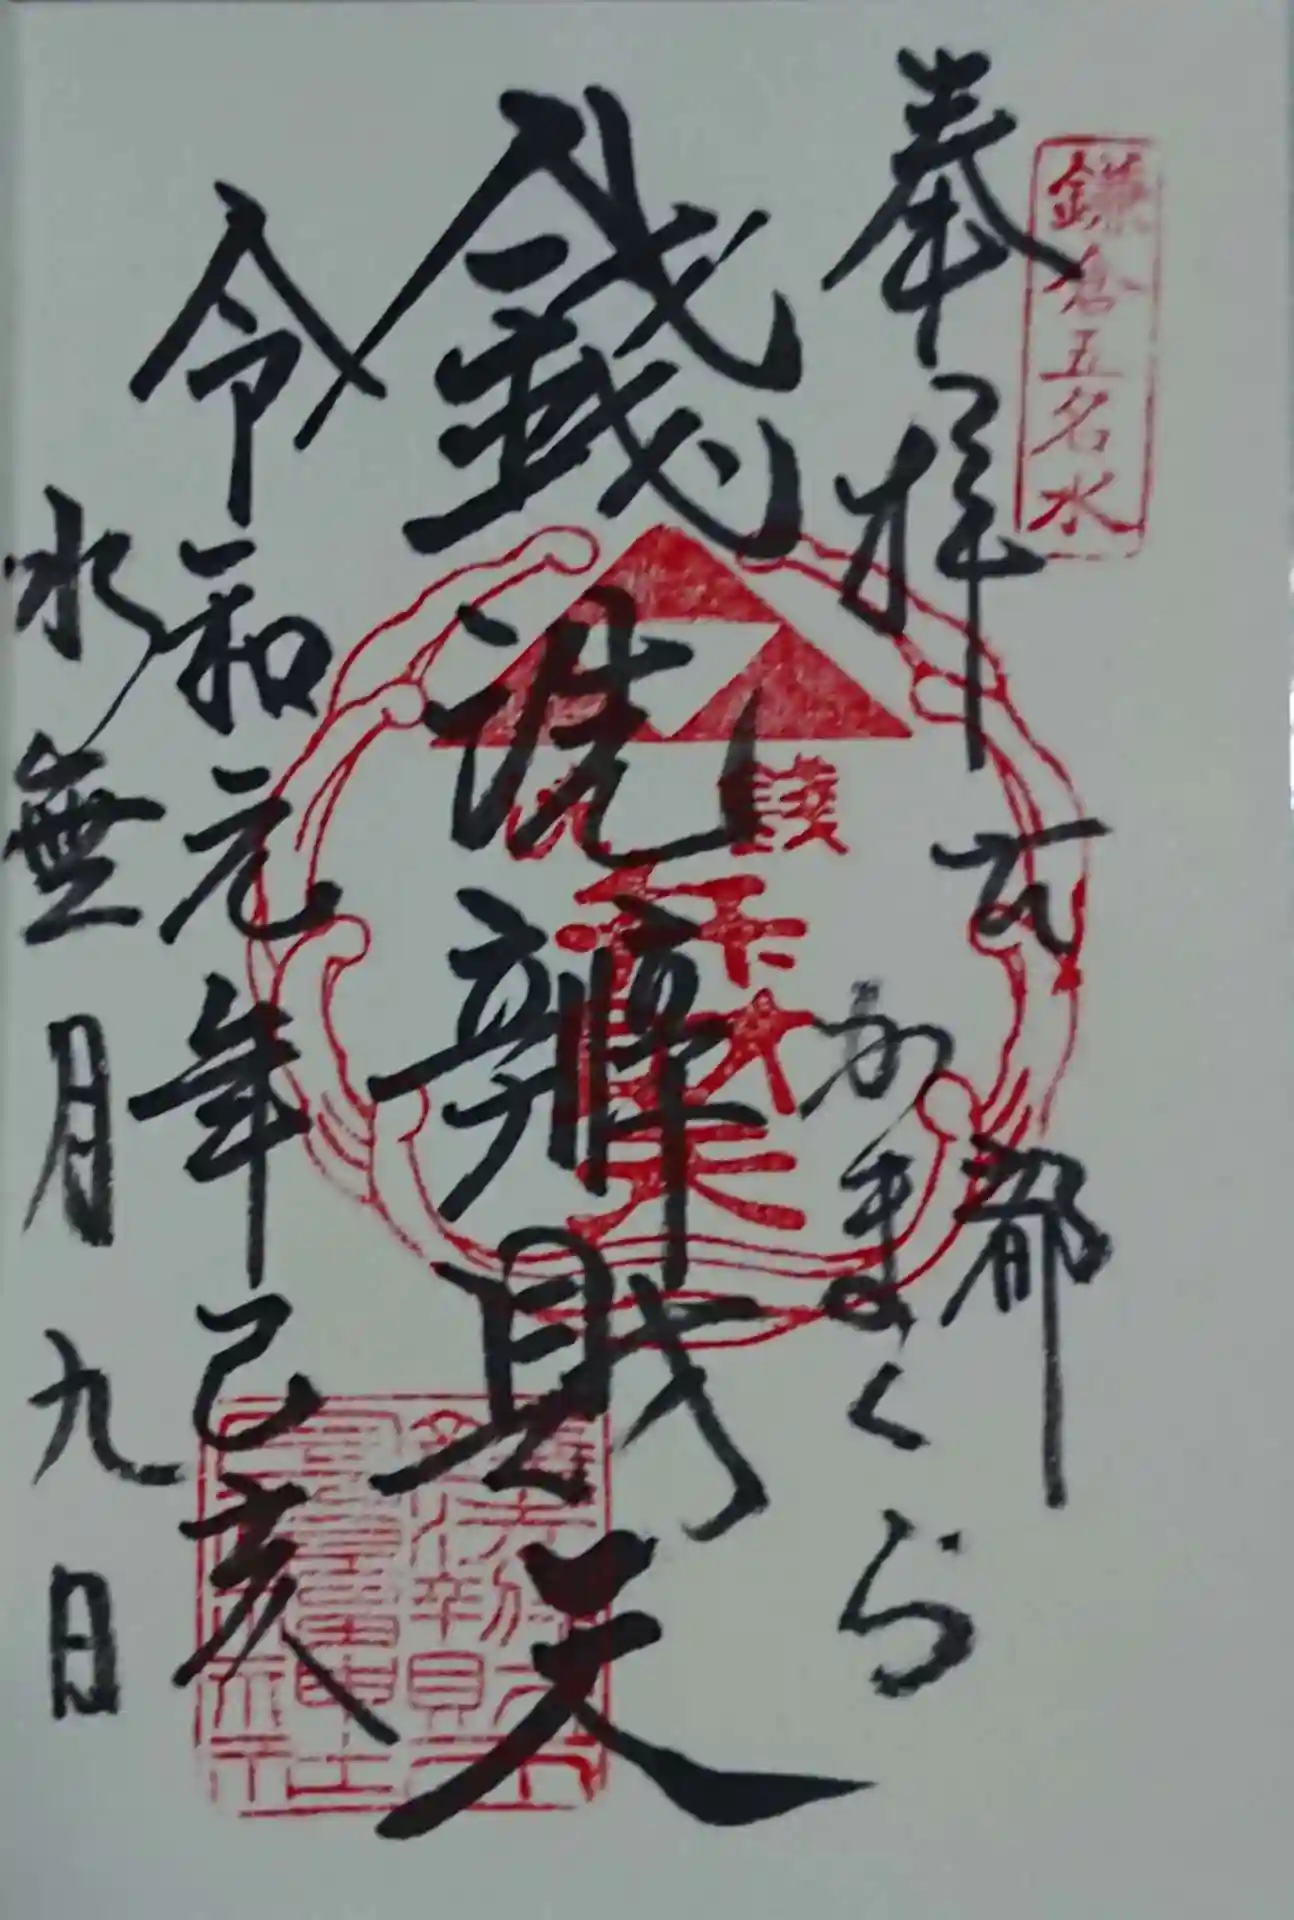 鎌倉五名水
奉拝
古都
かまくら
銭洗辨財天
令和元年己亥
水無月九日
銭